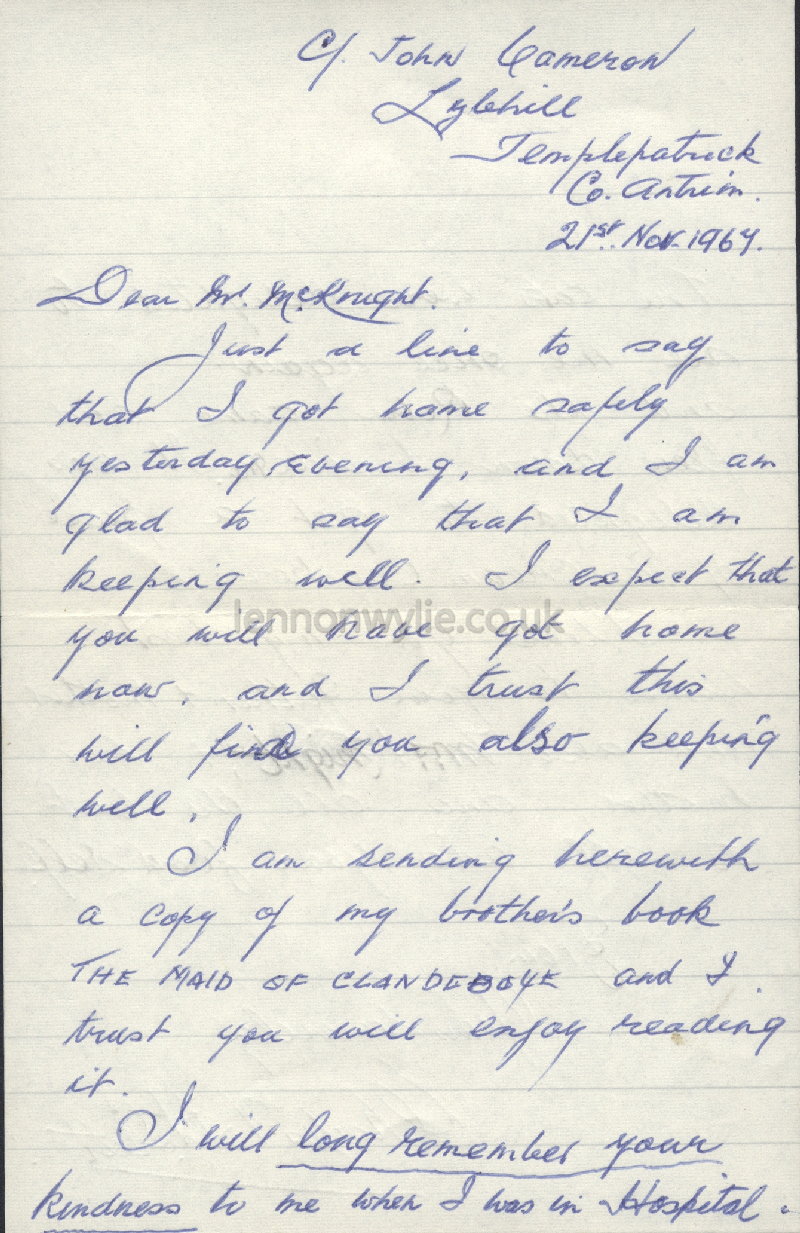 C/. John Cameron
Lylehill
Templepatrick
Co. Antrim.
21st. Nov. 1967.
Dear Mr. McKnight.
Just a line to say
that I got home safely
yesterday, evening, and I am
glad to say that I am
keeping well. I expect that
lennonwylie.co.uk
you will have got home
now, and I trust this
will find you also keeping
well.
I am sending herewith
a copy of my brother's book
THE MAID OF CLANDEBOYE and I
trust you will enjoy reading
it.
I will long remember your
kindness to me when I was in Hospital.